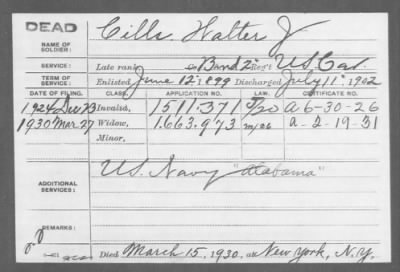 DEAD
NAME OF SOLDIER: Cills, Walter J
SERVICE: Late rank, Band 2" Reg't U.S. Cav.
TERM OF SERVICE: Enlisted June 12", 1899 Discharged July 11", 1902
DATE OF FILING. CLASS. APPLICATION NO. LAW. CERTIFICATE NO.
1924 Dec 23 Invalid, 1511.371 a-6-30-26
1930 Mar. 27 Widow, 1.663.973 a-2-19-31
Minor,
ADDITIONAL SERVICES: U.S. Navy "Alabama"
REMARKS:
Died March 15, 1930. at New York, N.Y.